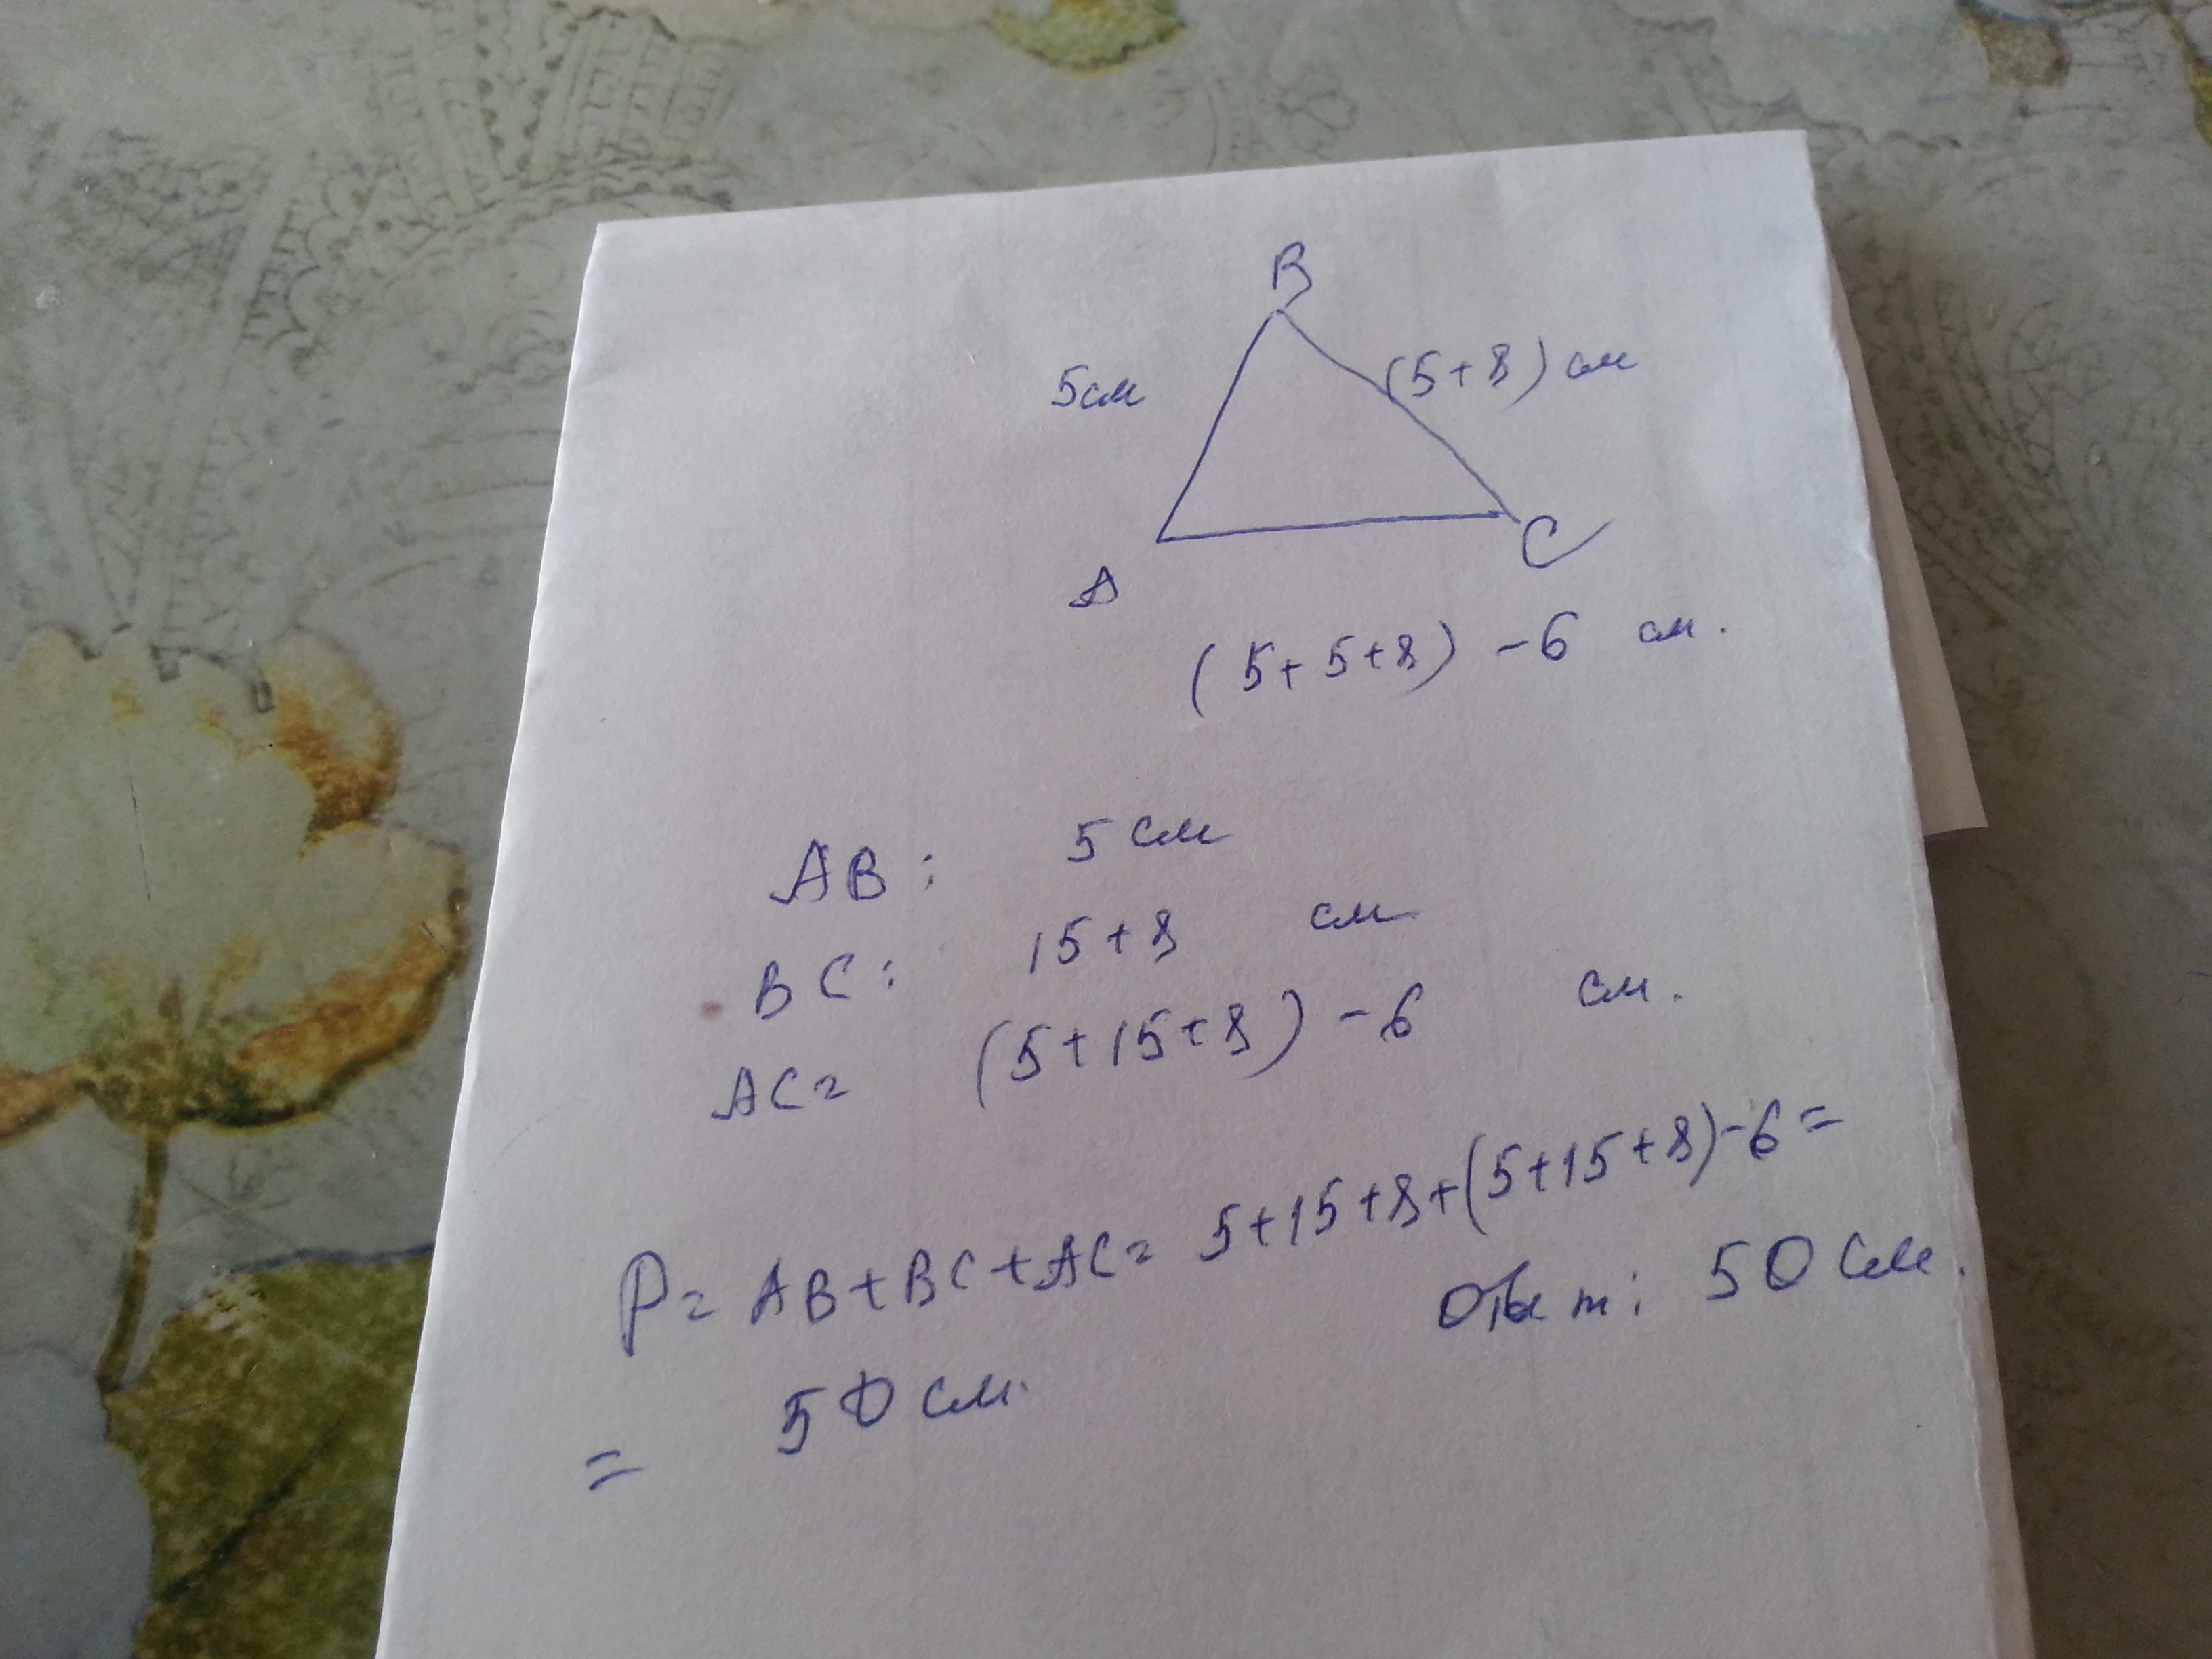 B
5см
(5+8) см
A
C
(5+5+8) -6 см.
AB: 5 см
BC: 15+8 см
AC= (5+15+8) -6 см.
P= AB+BC+AC= 5+15+8+(5+15+8)-6=
= 50 см.
Ответ: 50 см.